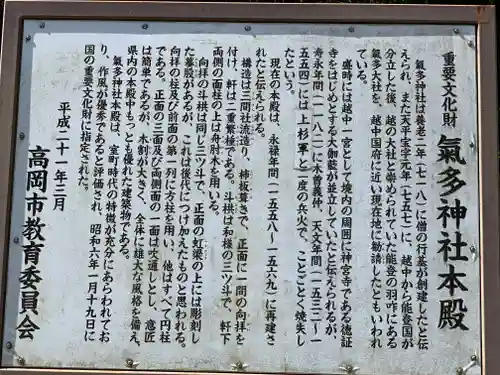 重要文化財 氣多神社本殿
氣多神社は養老二年(七一八)に僧の行基が創建したと伝
えられ、また天平宝字元年(七五七)に、越中から能登国が
分立した後、越の大社と崇められていた能登の羽咋にある
氣多大社を、越中国府に近い現在地に勧請したともいわれ
る。
盛時には越中一宮として境内の周囲に神宮寺である徳証
寺をはじめとする大伽藍が並立していたと伝えられるが、
寿永年間(一一八二)に木曽義仲、天文年間(一五三二～一
五五四)には上杉軍と二度の兵火で、ことごとく焼失し
たという。
現在の本殿は、永禄年間(一五五八～一五六九)に再建さ
れたと伝えられる。
構造は三間社流造り、杮板葺きで、正面に一間の向拝を
付け、軒は二重繁棰である。斗栱は和様の三ツ斗で、軒下
両側の面柱の上は舟肘木を用いる。
向拝の斗栱は同じ三ツ斗で、正面の虹梁の上には彫刻し
た蟇股があるが、これは後代につけ加えたものと思われる。
向拝の柱及び前面の第一列に方柱を用い、他はすべて円柱
である。正面の三面及び両側面の一面は吹通しとし、意匠
は簡単であるが、木割が大きく、全体に雄大な風格を備え、
県内の本殿中もっとも優れた建築物である。
氣多神社本殿は、室町時代の特徴が充分にあらわれてお
り、作風が優秀であると評価され、昭和六年一月十九日に
国の重要文化財に指定された。
平成二十一年三月
高岡市教育委員会